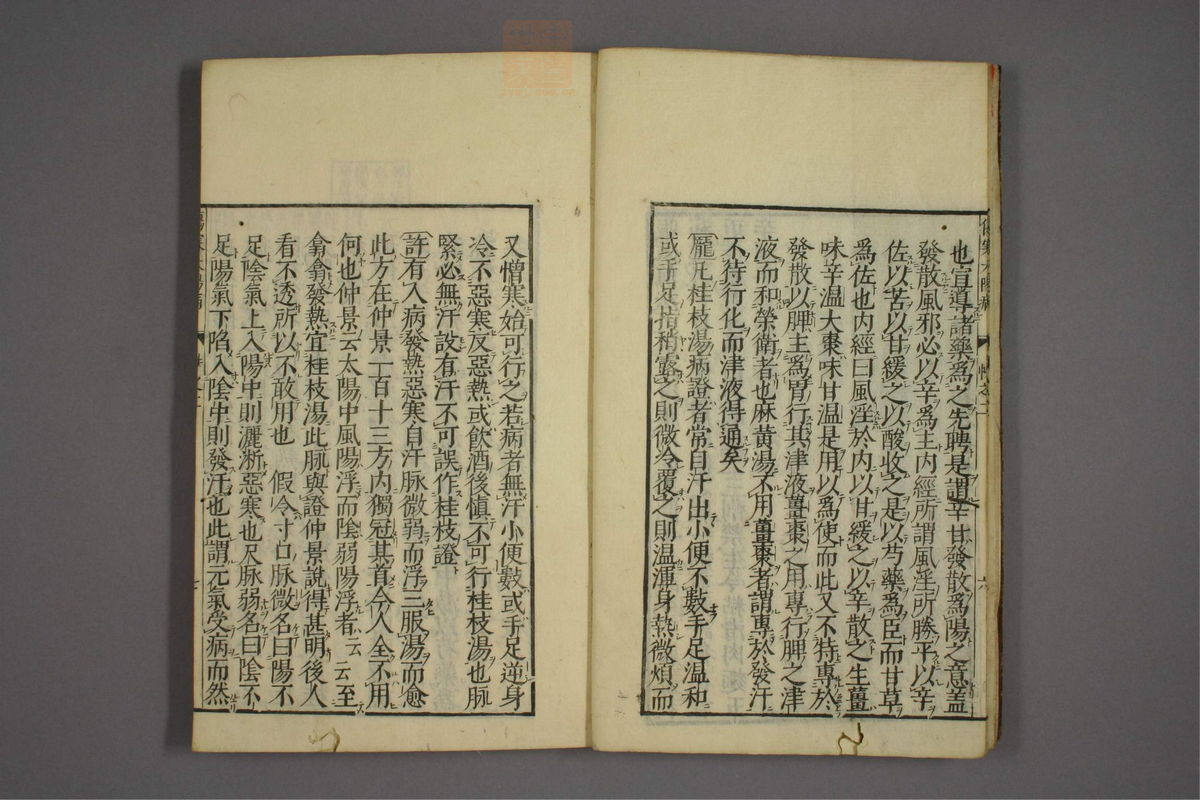 也宣導諸藥為之先聘是謂辛甘發散為陽之意蓋
發散風邪必以辛為主内經所謂風淫所勝平以辛
佐以苦以甘緩之以酸收之是以芍藥為臣而甘草
為佐也内經曰風淫於内以甘緩之以辛散之生薑
味辛温大棗味甘温是用以為使而此又不特專於
發散以脾主為胃行其津液薑棗之用專行脾之津
液而和榮衛者也麻黄湯不用薑棗者謂專於發汗
不待行化而津液得通矣
龐元桂枝湯病證者常自汗出小便不數手足温和
或手足指稍露之則微冷覆之則温渾身熱微煩而
又憎寒始可行之若病者無汗小便數或手足逆身
冷不惡寒反惡熱或飲酒後慎不可行桂枝湯也脉
緊必無汗設有汗不可誤作桂枝證
許有人病發熱惡寒自汗脉微弱而浮三服湯而愈
此方在仲景一百十三方内獨冠其首今人全不用
何也仲景云太陽中風陽浮而陰弱陽浮者云云至
翕翕發熱宜桂枝湯此脉與證仲景說得甚明後人
看不透所以不敢用也 假令寸口脉微名曰陽不
足陰氣上入陽中則灑淅惡寒也尺脉弱名曰陰不
足陽氣下陷入陰中則發汗也此謂元氣受病而然